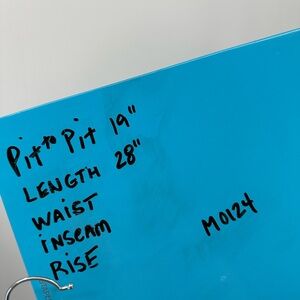 Pit to Pit 19"
LENGTH 28"
WAIST
INSEAM
RISE
M0124